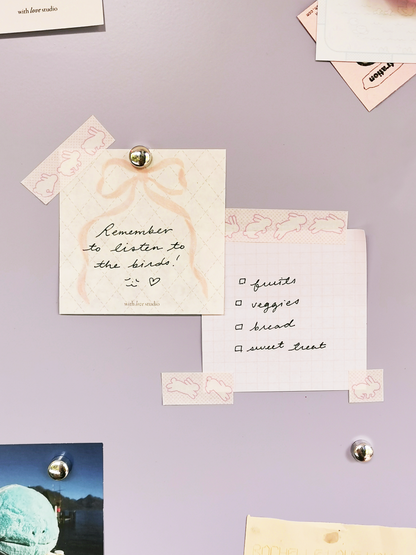 with love studio
Remember
to listen to
the birds!
with love studio
fruits
veggies
bread
sweet treat